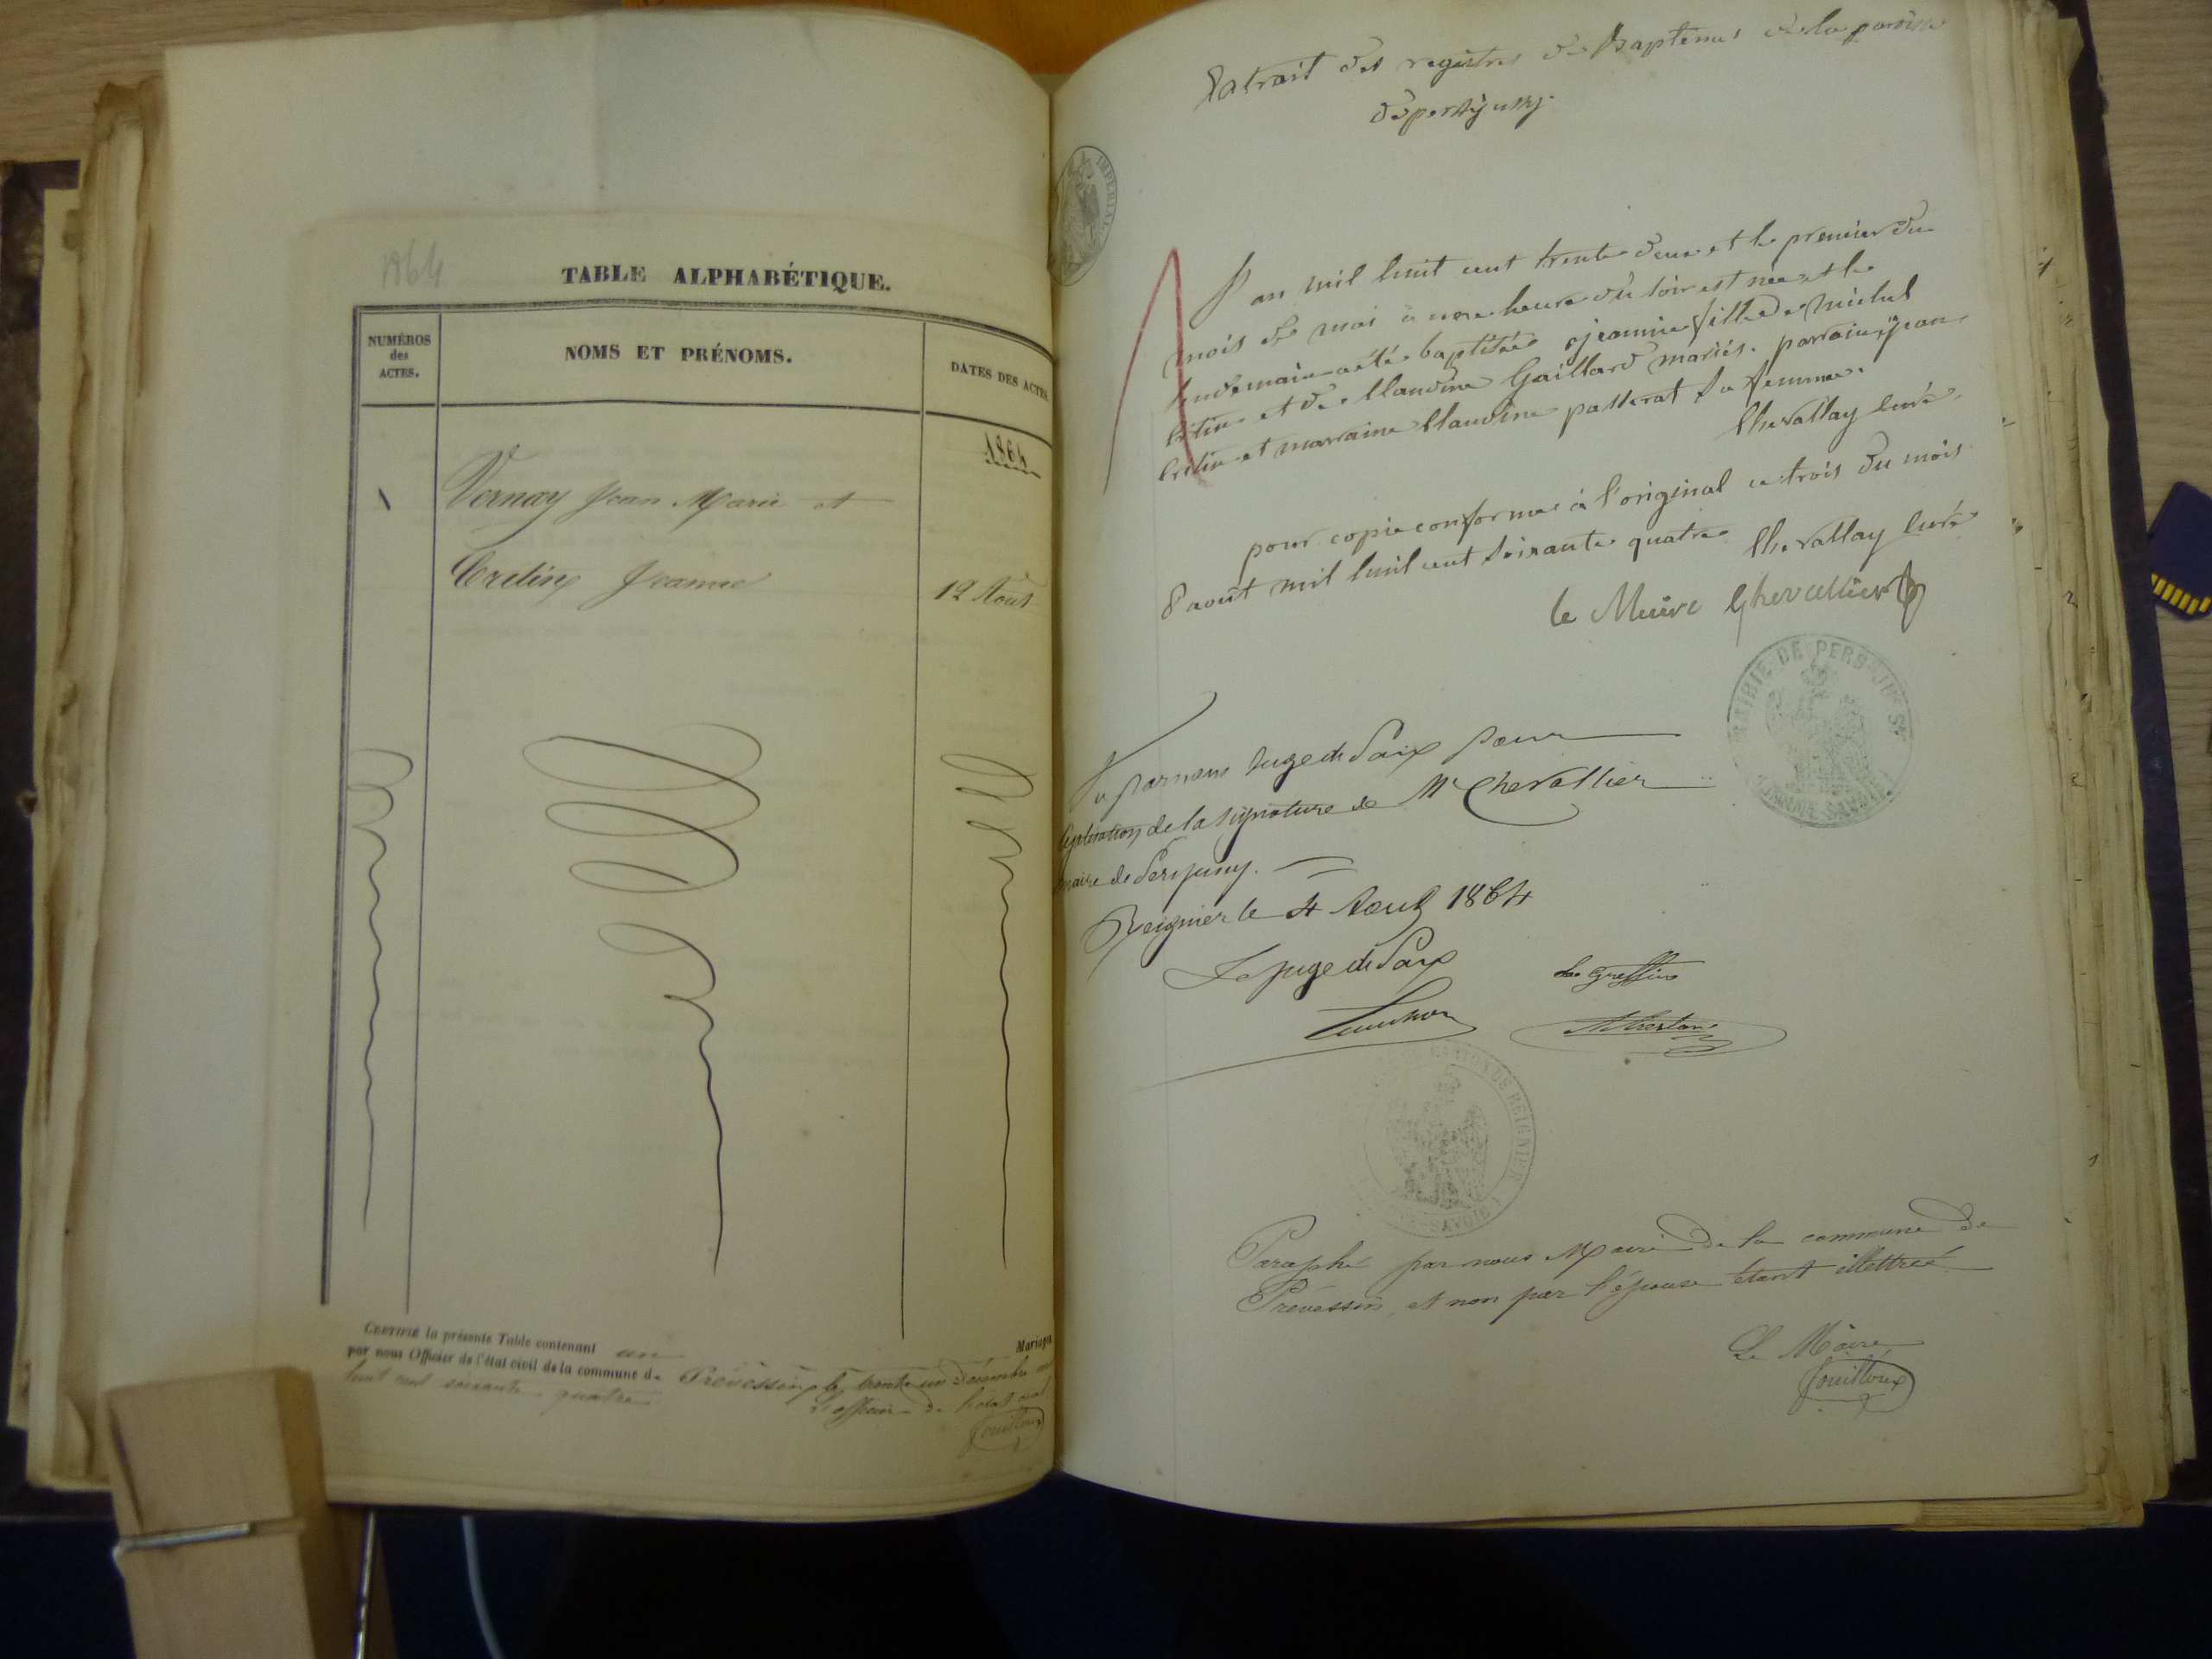 1864
TABLE ALPHABÉTIQUE.
NUMÉROS
des
ACTES.
NOMS ET PRÉNOMS.
DATES DES ACTES
1864
1
Vernay Jean Marie et
Cretin Jeanne
12 Août
CERTIFIÉ la présente Table contenant un Mariages
par nous Officier de l'état civil de la commune de Prévessin le trente un Décembre mil
huit cent soixante quatre
L'officier de l'état civil
Fouilloux
IMPÉRIAL
Extrait des registres de Baptêmes de la paroisse
de persjussy.
l'an mil huit cent trente deux et le premier du
mois de mai à une heure du soir est née et le
lendemain a été baptisée jeannie fille de michel
Cretin et de Claudine Gaillard mariés. parrain jean
Cretin et marraine Claudine passerat sa femme.
Chevallay curé.
pour copie conforme à l'original ce trois du mois
d'août mil huit cent soixante quatre Chevallay curé
le Maire Chevallier
MAIRIE DE PERS-JUSSY
HAUTE-SAVOIE
Vu par nous Juge de Paix pour
légalisation de la signature de Mr Chevallier
maire de Persjussy.
Reignier le 4 Août 1864
Le juge de Paix
Le Greffier
CANTON DE REIGNIER
SAVOIE
Paraphé par nous Maire de la commune de
Prévessin, et non par l'épouse étant illettrée
Le Maire
Fouilloux